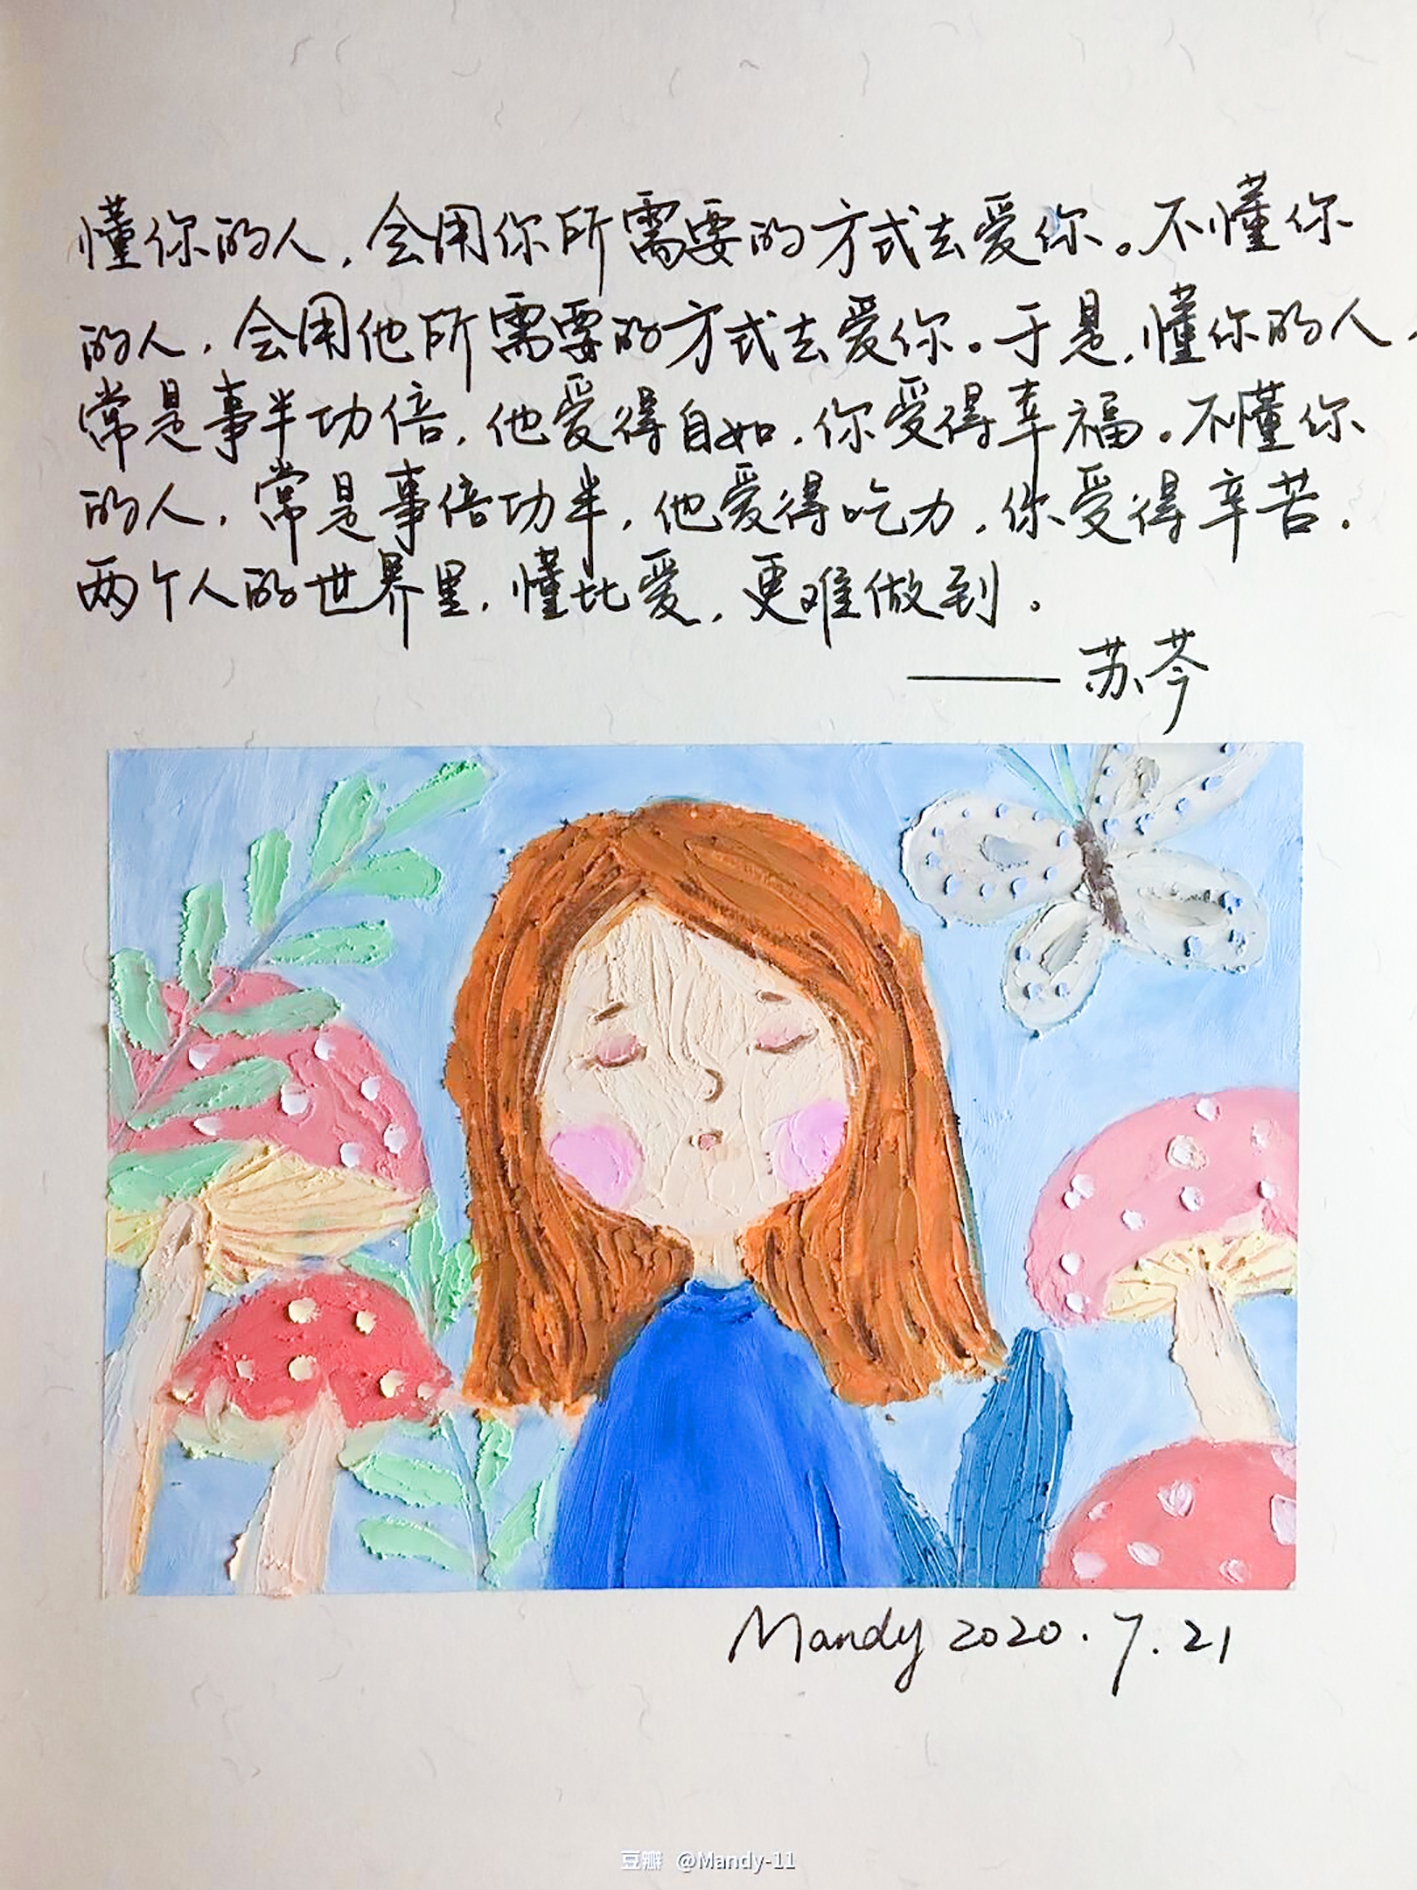 懂你的人,会用你所需要的方式去爱你。不懂你
的人,会用他所需要的方式去爱你。于是,懂你的人,
常是事半功倍,他爱得自如,你受得幸福。不懂你
的人,常是事倍功半,他爱得吃力,你受得辛苦.
两个人的世界里,懂比爱,更难做到。
——苏芩
Mandy 2020.7.21
豆瓣 @Mandy-11